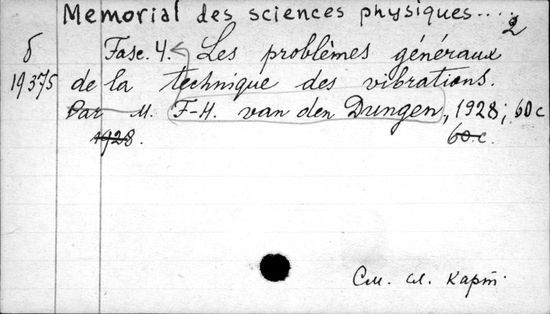 Memorial des sciences physiques.... 2
б Fasc. 4. Les problèmes généraux
19375 de la technique des vibrations.
Par M. F-H. van den Dungen, 1928; 60 c
1928. 60 c.
См. сл. карт.